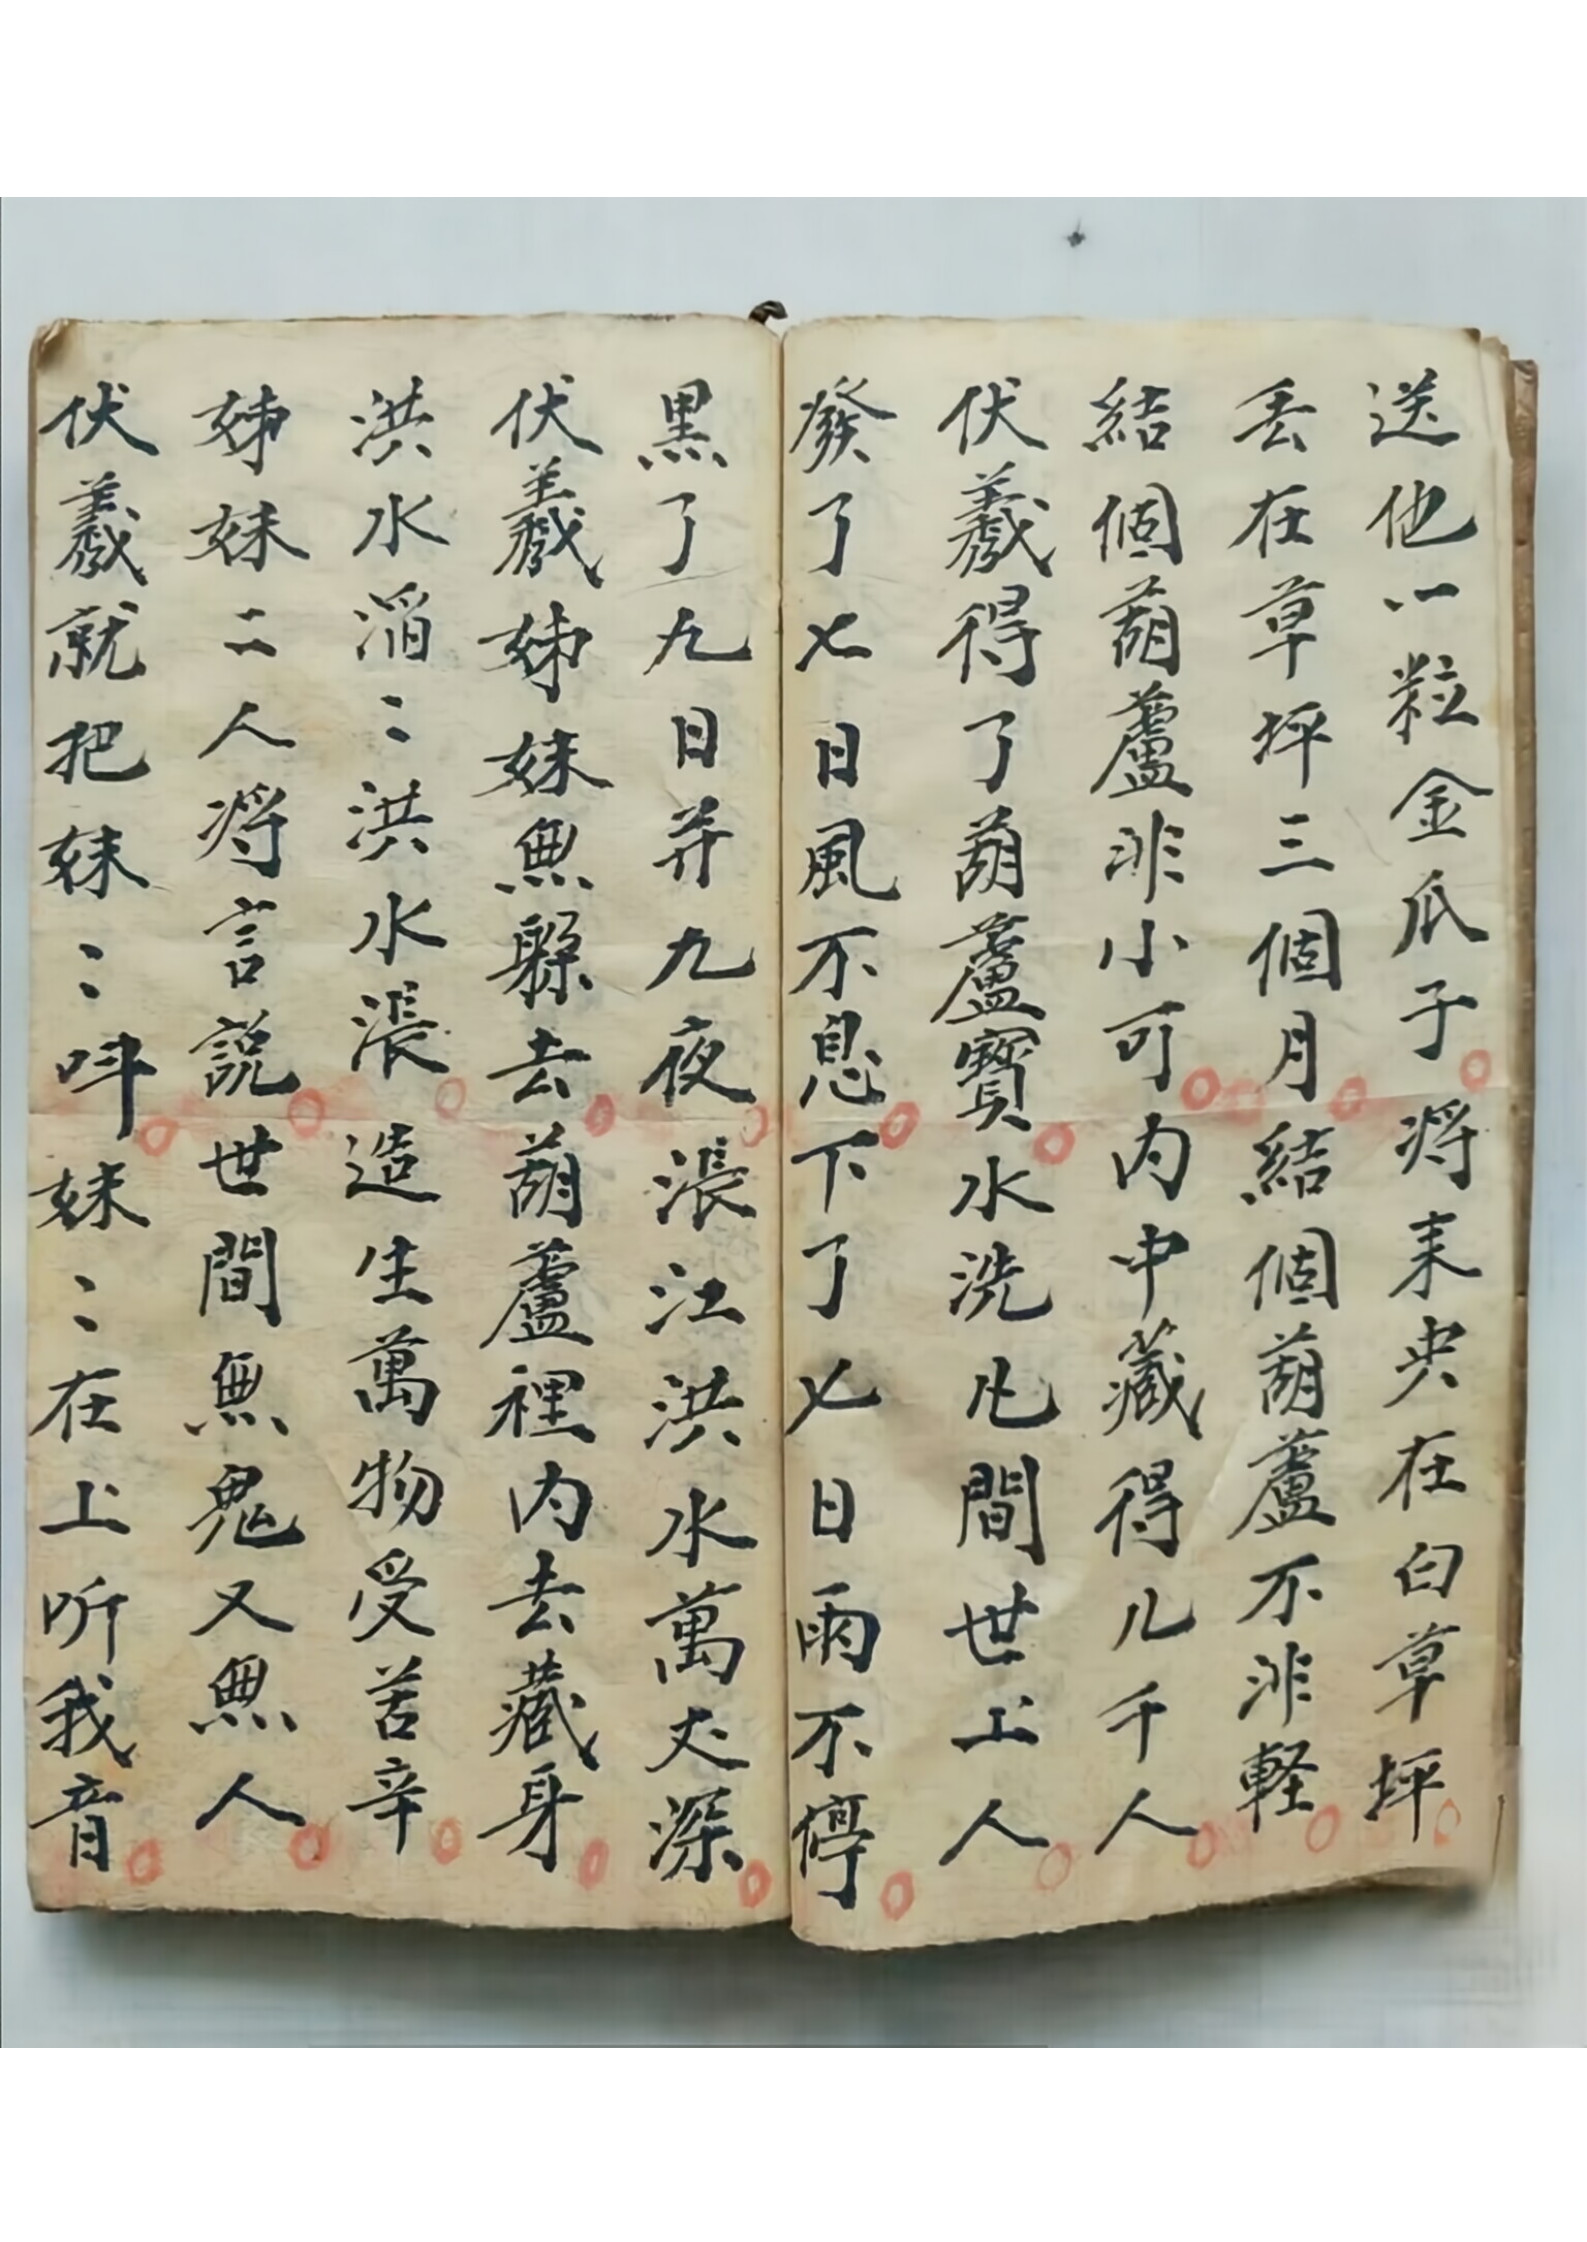 送他一粒金瓜子将来央在白草坪
丢在草坪三個月結個葫蘆不非軽
結個葫蘆非小可内中藏得几千人
伏羲得了葫蘆寶水洗凡間世上人
發了七日風不息下了七日雨不停
黑了九日并九夜漲江洪水萬丈深
伏羲姊妹無縣去葫蘆裡内去藏身
洪水滔〻洪水漲造生萬物受苦辛
姊妹二人将言説世間無鬼又無人
伏羲就把妹〻呌妹〻在上听我音